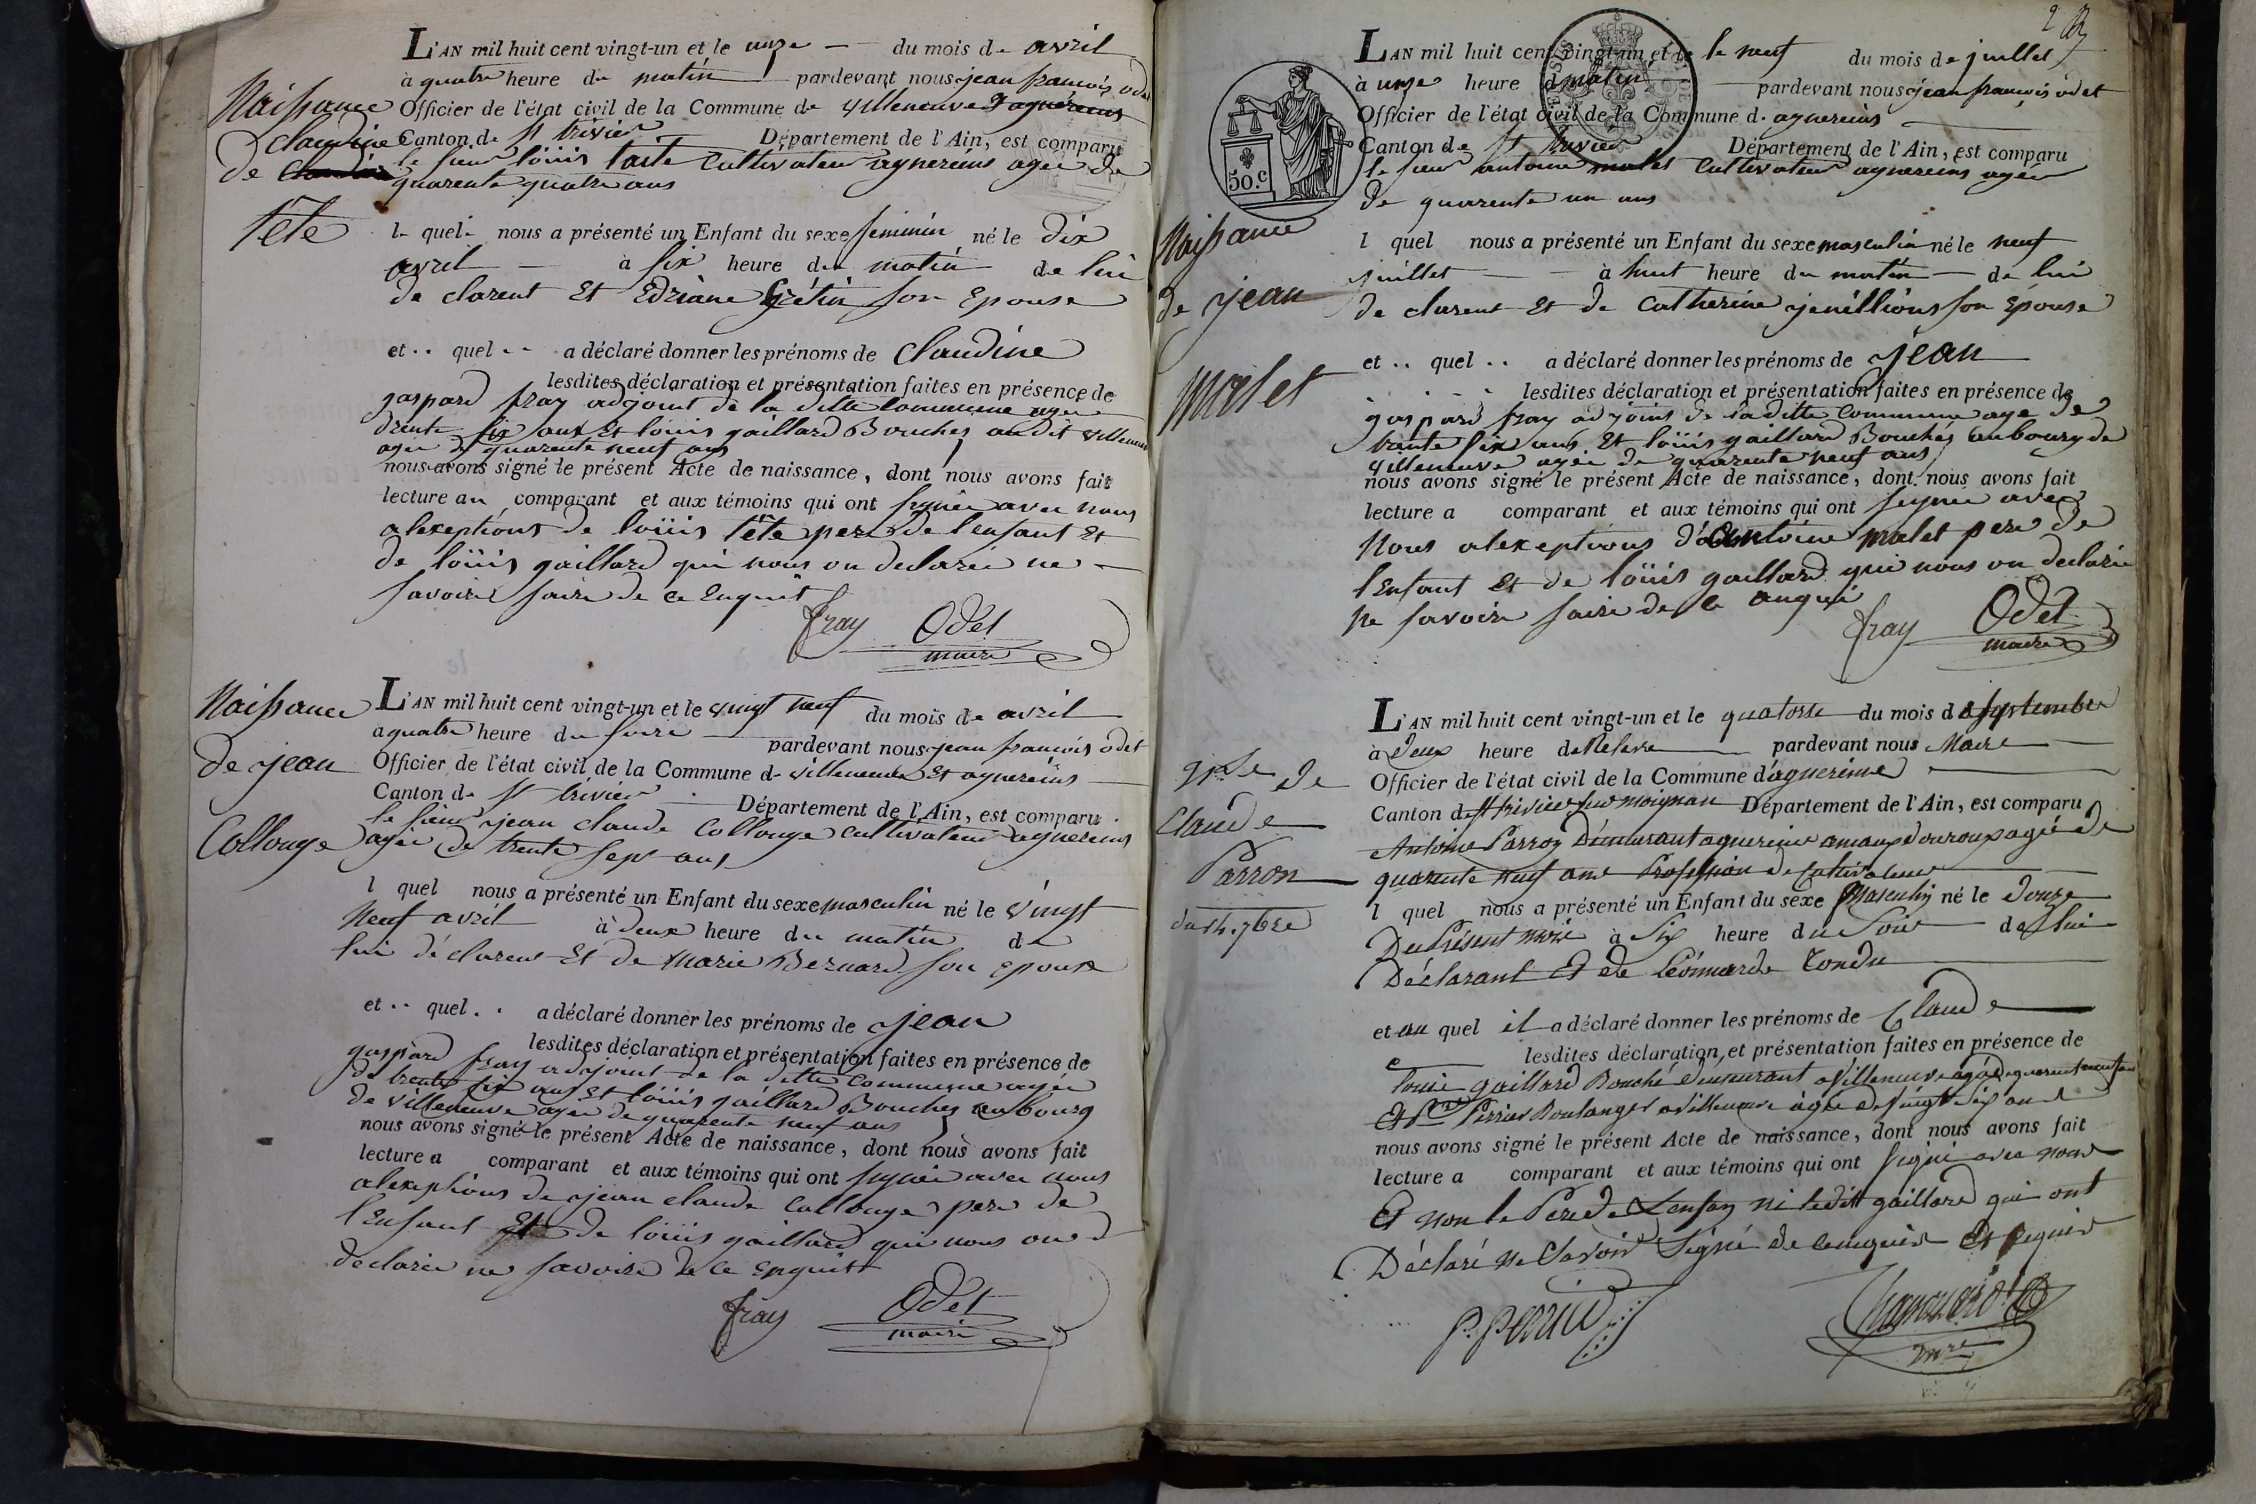 L'AN mil huit cent vingt-un et le unze du mois de avril
à quatre heure du matin pardevant nous jean francois odet
Officier de l'état civil de la Commune de villeneuve
Canton de st trivier Département de l'Ain, est comparu
le sieur loüis taite cultivateur agnereins agée de
quarente quatre ans
Naissance
de claudine
tête
l quel nous a présenté un Enfant du sexe feminin né le dix
avril à six heure du matin de lui
de clarent Et Edriane son Epouse
et quel a déclaré donner les prénoms de claudine
lesdites déclaration et présentation faites en présence de
gaspard fray adjoint de la ditte commune agée
trente six ans Et loüis gaillard Bouches audit
agée de quarente neuf ans
nous avons signé le présent Acte de naissance, dont nous avons fait
lecture au comparant et aux témoins qui ont signée avec nous
alexeptions de loüis tête pere de l'enfant Et
de loüis gaillard qui nous on declarée ne
savoire faire de ce Enquit
fray Odet
maire
L'AN mil huit cent vingt-un et le vingt neuf du mois de avril
a quatre heure du soire pardevant nous jean francois odet
Officier de l'état civil de la Commune d villeneuve Et agnereins
Canton de st trivier Département de l'Ain, est comparu
le sieur jean claude Collonge cultivateur agnereins
agée de trente sept ans
Naissance
de jean
Collonge
l quel nous a présenté un Enfant du sexe masculin né le vingt
neuf avril à deux heure du matin de
lui déclarent Et de Marie Bernard son epouse
et quel a déclaré donner les prénoms de jean
lesdites déclaration et présentation faites en présence de
gaspard fray adjoint de la ditte commune agée
de trente six ans Et loüis gaillard Bouches au bourg
de villeneuve agée de quarente neuf ans
nous avons signé le présent Acte de naissance, dont nous avons fait
lecture a comparant et aux témoins qui ont signée avec nous
alexeptions de jean claude Collonge pere de
l'Enfant Et de loüis gaillard qui nous on
declarée ne savoire de ce Enquit
fray Odet
maire
50.c
L'AN mil huit cent vingt-un et le le neuf du mois de juillet
à unze heure d matin pardevant nous jean francois odet
Officier de l'état civil de la Commune d. agnereins
Canton de st trivier Département de l'Ain, est comparu
le sieur antoine malet cultivateur agnereins agée
de quarente un ans
Naissance
de jean
malet
l quel nous a présenté un Enfant du sexe masculin né le neuf
juillet à huit heure du matin de lui
de clarent Et de Catherine jenillions son Épouse
et quel a déclaré donner les prénoms de jean
lesdites déclaration et présentation faites en présence de
gaspard fray adjoint de la ditte commune age de
trente six ans Et loüis gaillard Bouchés au bourg de
villeneuve agée de quarente neuf ans
nous avons signé le présent Acte de naissance, dont nous avons fait
lecture a comparant et aux témoins qui ont signée avec
Nous alexeptions d'antoine malet pere de
l'Enfant Et de loüis gaillard qui nous on declarée
ne savoire faire de ce
fray Odet
maire
L'AN mil huit cent vingt-un et le quatorse du mois de septembre
à deux heure de Relevé pardevant nous Maire
Officier de l'état civil de la Commune d'agnerine
Canton de st trivier sur moignan Département de l'Ain, est comparu
Antoine Parron Demeurant agnerine agée de
quarente neuf ans Profession de Cultivateur
de
Claude
Parron
du 14. 7bre
l quel nous a présenté un Enfant du sexe Masculin né le Douze
Du Présent mois à Six heure du Soir de lui
Déclarant Et de Léonnarde Tondu
et au quel il a déclaré donner les prénoms de Claude
lesdites déclaration et présentation faites en présence de
Louis gaillard Bouché demeurant a Villeneuve agé de quarente neuf ans
Et Pre Perrier Boulanger a Villeneuve agée de vingt Six ans
nous avons signé le présent Acte de naissance, dont nous avons fait
lecture a comparant et aux témoins qui ont signé avec nous
Et non le Pere de Lenfan ni ledit gaillard qui ont
Déclaré ne Savoir Signé de ce enquis Et Requis
mre